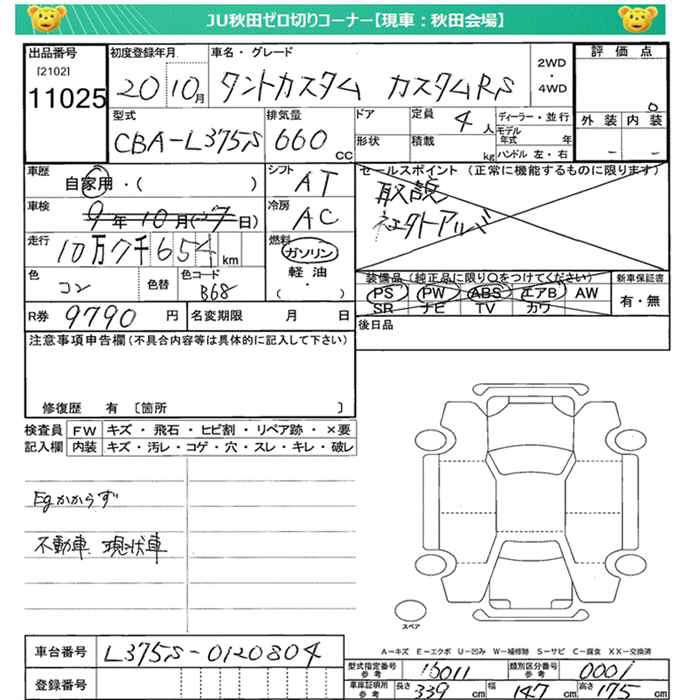 JU秋田ゼロ切りコーナー【現車：秋田会場】
出品番号
[2102]
11025
初度登録年月
20 10月
車名・グレード
タントカスタム カスタムRS
2WD
・
4WD
評価点
0
外装 内装
- -
型式
CBA-L375S
排気量
660 CC
ドア
形状
定員
4人
積載
kg
ディーラー・並行
モデル年式 年
ハンドル 左・右
車歴
自家用・( )
シフト
AT
車検
9年10月(27日)
冷房
AC
走行
10万7千654 km
燃料
ガソリン
軽油
・
( )
色
コン
色替
色コード
B68
R券 9790 円
名変期限 月 日
セールスポイント (正常に機能するものに限ります)
取説
社外アルミ
装備品 (純正品に限り○をつけてください)
PS PW ABS エアB AW
SR ナビ TV カワ
新車保証書
有・無
後日品
注意事項申告欄(不具合内容等は具体的に記入して下さい)
修復歴 有 〔箇所 〕
検査員
記入欄
FW キズ・飛石・ヒビ割・リペア跡・×要
内装 キズ・汚レ・コゲ・穴・スレ・キレ・破レ
Egかからず
不動車 現状車
スペア
A－キズ E－エクボ U－凹み W－補修跡 S－サビ C－腐食 XX－交換済
車台番号 L375S-0120804
登録番号
型式指定番号
参考
16011
類別区分番号
参考
0001
車庫証明用
参考
長さ 339 cm 幅 147 cm 高さ 175 cm